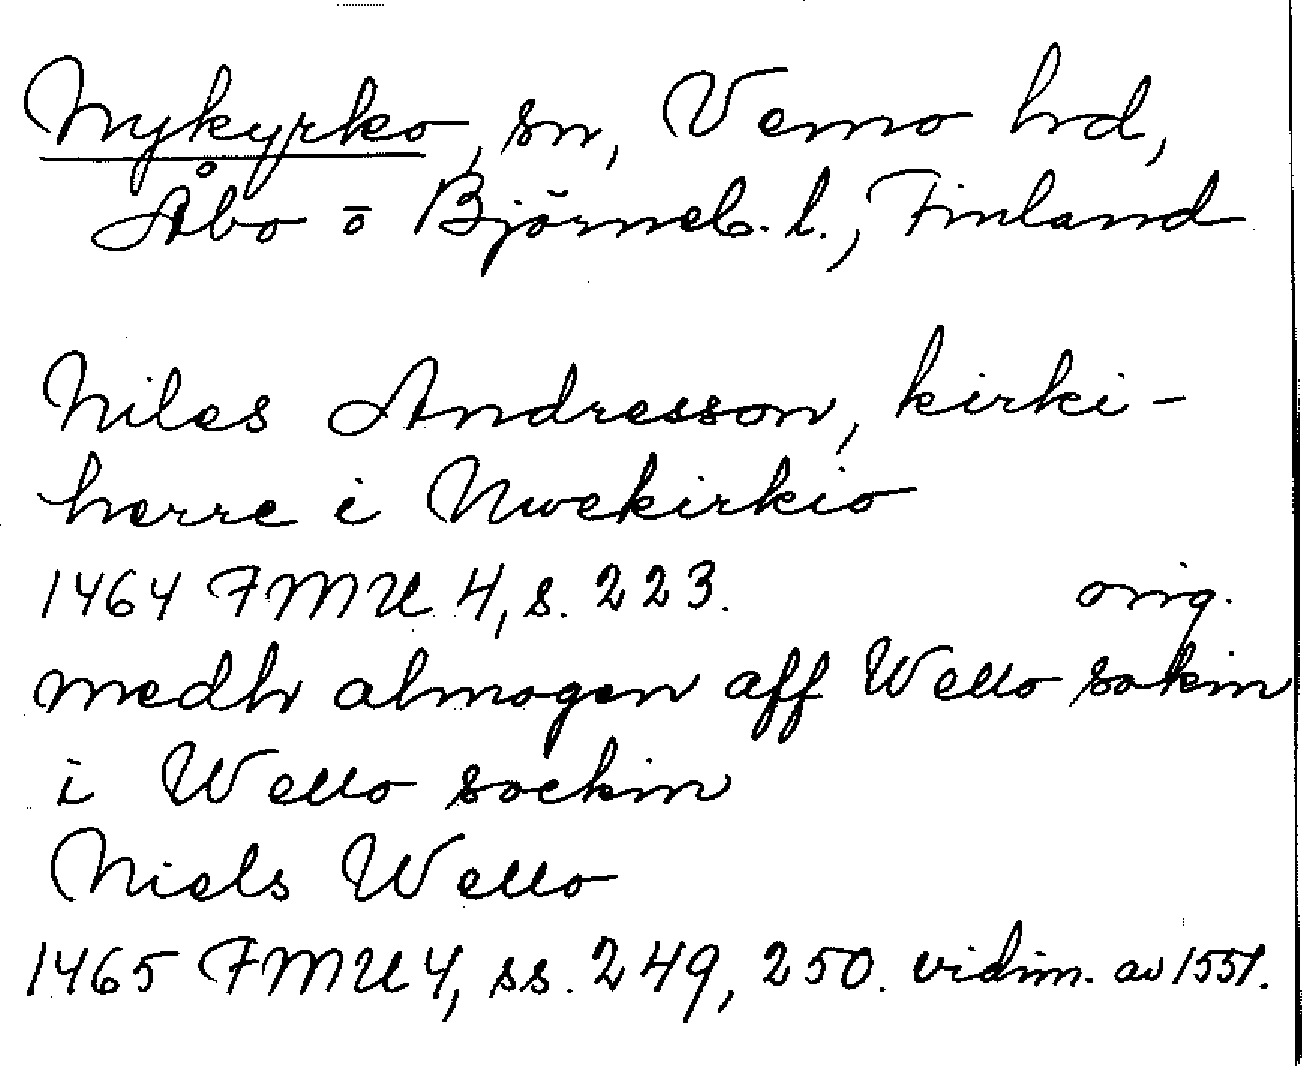 Nykyrko, sn, Vemo hrd,
Åbo o Björneb. l., Finland
Niles Andresson, kirki-
herre i Nwekirkio
1464 FMU 4, s. 223. orig.
medh almogen aff Wello sokin
i Wello sockin
Niels Wello
1465 FMU 4, ss. 249, 250. vidim. av 1551.